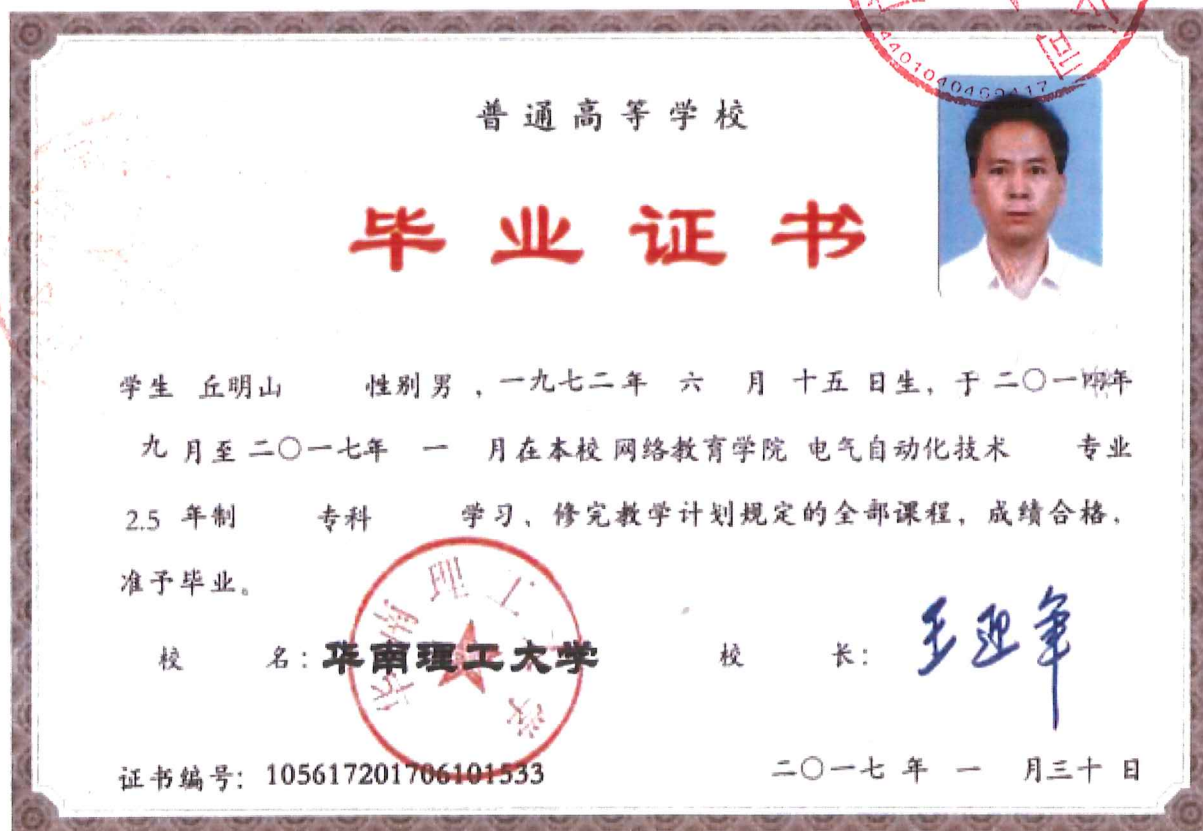 4401040469417
普通高等学校
毕业证书
学生 丘明山 性别男，一九七二年 六 月 十五 日生，于二〇一四年
九 月至二〇一七年 一 月在本校 网络教育学院 电气自动化技术 专业
2.5 年制 专科 学习、修完教学计划规定的全部课程，成绩合格，
准予毕业。
华南理工
校 名：华南理工大学 校 长：王迎军
证书编号：105617201706101533 二〇一七 年 一 月三十 日